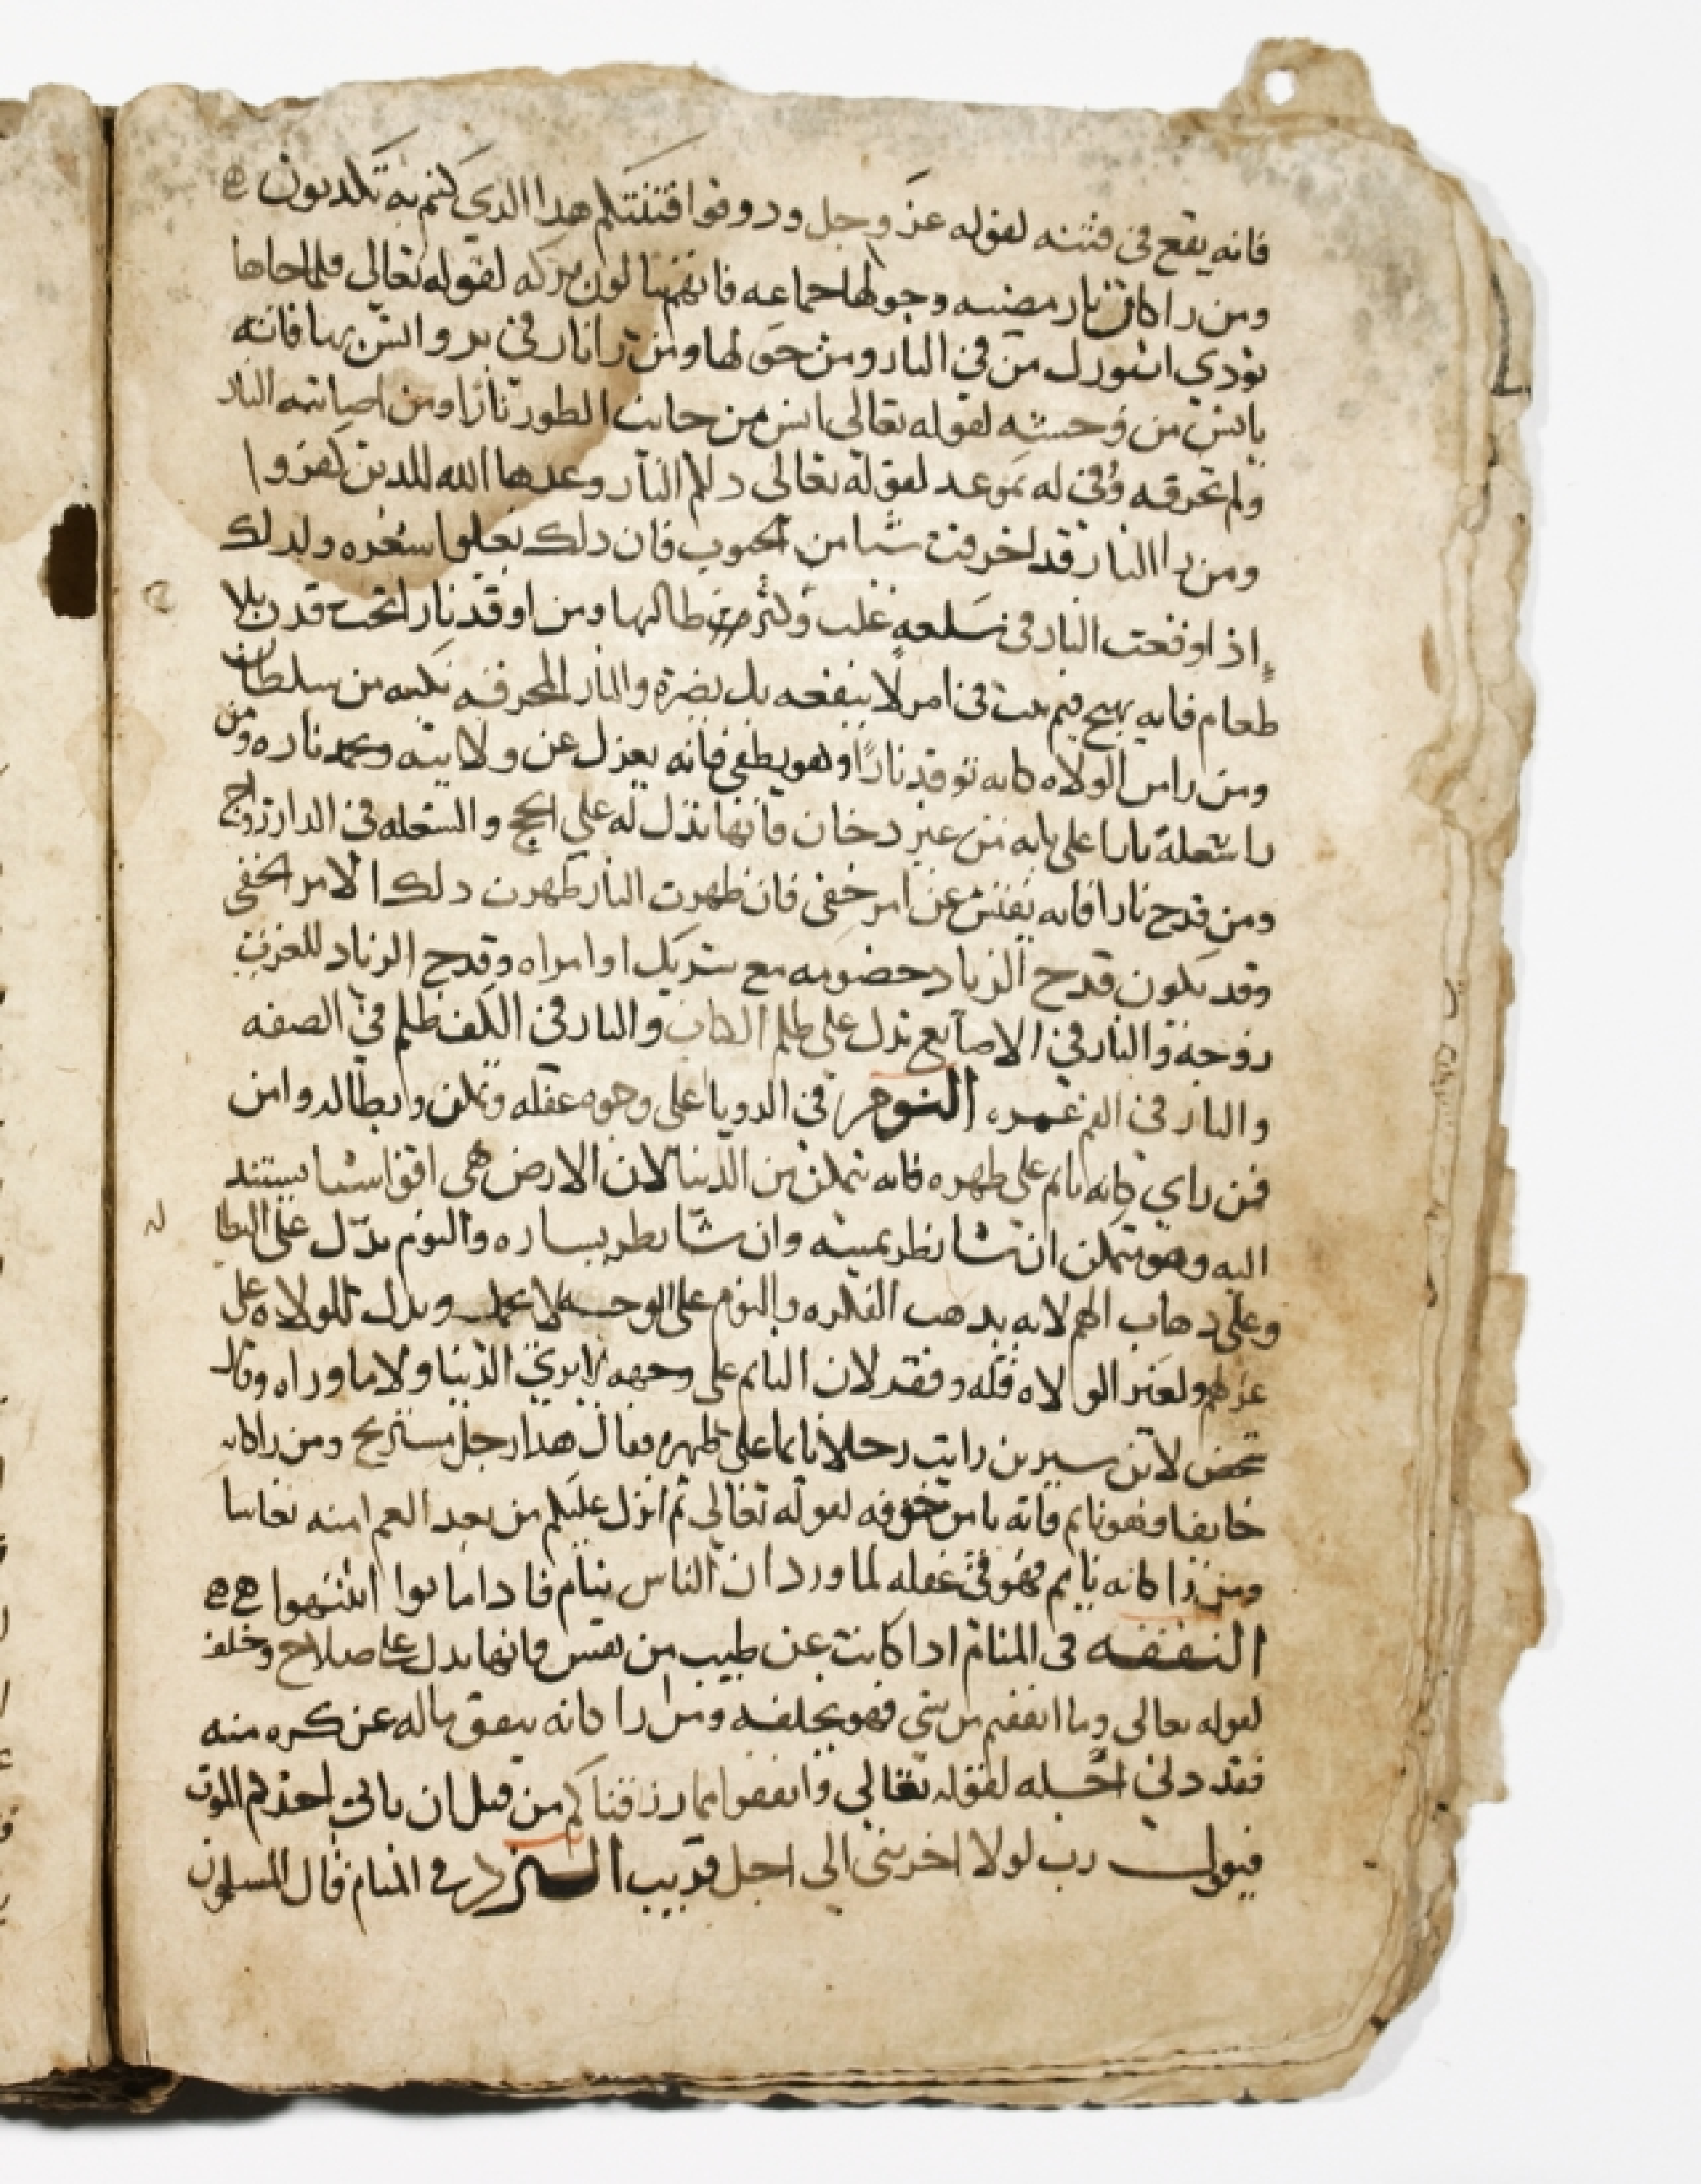 فانه يقع في فتنه لقوله عز وجل ودوقوا فتنتكم هدا الدي كنتم به تكدبون
ومن را كان نار مضيه وحولها جماعه فانهم ينالون بركه لقوله تعالى فلما جاها
نودي ان بورك من في النار ومن حولها ومن را نار في بر وانس بها فانه
يانس من وحشته لقوله تعالى انس من جانب الطور نارا ومن اصابته النار
ولم تحرقه وفي له بموعد لقوله تعالى النار وعدها الله للدين كفروا
ومن را النار قد احرقت شيا من الحبوب فان دلك يغلوا سعره ولدلك
اذا وقعت النار في سلعه غلت وكثر طالبها ومن اوقد نارا تحت قدر بلا
طعام فانه يهيج قيم بيت في امر لا ينفعه بل يضره والنار المحرقه نكبه من سلطان
ومن را من الولاه كانه توقد نارا وهو يطفي فانه يعزل عن ولايته وتخمد ناره ومن
را شعلة نارا على بابه من غير دخان فانها تدل له على الحج والشعله في الدار زواج
ومن قدح نارا فانه يفتش عن امر خفي فان ظهرت النار ظهر دلك الامر الخفي
وقد يكون قدح الزناد خصومه مع شريك او امراه وقدح الزناد للعزب
زوجة والنار في الاصابع تدل على ظلم الكتاب والنار في الكف ظلم في الصنعه
والنار في الفم النوم في الرويا على وجوه غفله وتمكن وابطال وامن
فمن راي كانه نايم على ظهره فانه يتمكن من الدنيا لان الارض هي اقوا شيا يستند
اليه وهو متمكن ان شا نظر يمينه وان شا نظر يساره والنوم يدل على البطا
وعلى دهاب الهم لانه يدهب الفكره والنوم على الوجه لا يحمد ويدل للولاه على
عزلهم ولغير الولاه قله وفقد لان النايم على وجهه لا يري الدنيا ولا ما وراه وقال
شخص لابن سيرين رايت رجلا نايما على ظهره فقال هدا رجل مستريح ومن را كانه
خايفا وهو نايم فانه يامن خوفه لقوله تعالى ثم انزل عليكم من بعد الغم امنه نعاسا
ومن را كانه نايم فهو في غفله لما ورد ان الناس نيام فادا ماتوا انتبهوا
النفقه في المنام ادا كانت عن طيب من نفس فانها تدل على صلاح وخلف
لقوله تعالى وما انفقتم من شي فهو يخلفه ومن را كانه ينفق ماله عن كره منه
فقد دني اجله لقوله تعالي وانفقوا مما رزقناكم من قبل ان ياتي احدكم الموت
فيقول رب لولا اخرتني الى اجل قريب في المنام قال المسلمون